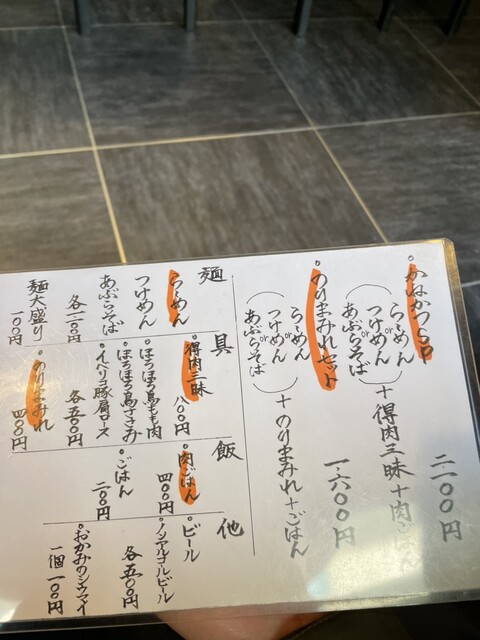 かなかつSP
らぁめん
or
つけめん
or
あぶらそば
＋得肉三昧＋肉ごはん
二二〇〇円
のりまみれセット
らぁめん
or
つけめん
or
あぶらそば
＋のりまみれ＋ごはん
一、六〇〇円
麺
らぁめん
つけめん
あぶらそば
各一一〇〇円
麺大盛り
一〇〇円
具
得肉三昧
八〇〇円
ほろほろ鳥もも肉
ほろほろ鳥ささみ
イベリコ豚肩ロース
各五〇〇円
のりまみれ
四〇〇円
飯
肉ごはん
四〇〇円
ごはん
二〇〇円
他
ビール
ノンアルコールビール
各五〇〇円
おかみのシウマイ
一個一〇〇円